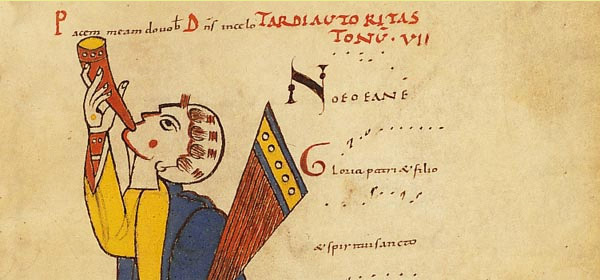 Pacem meam do vob Dns in celo TARDI AUTORITAS
TONŪ · VII
NOEOEANE
Gloria patri & filio
& spiritui sancto